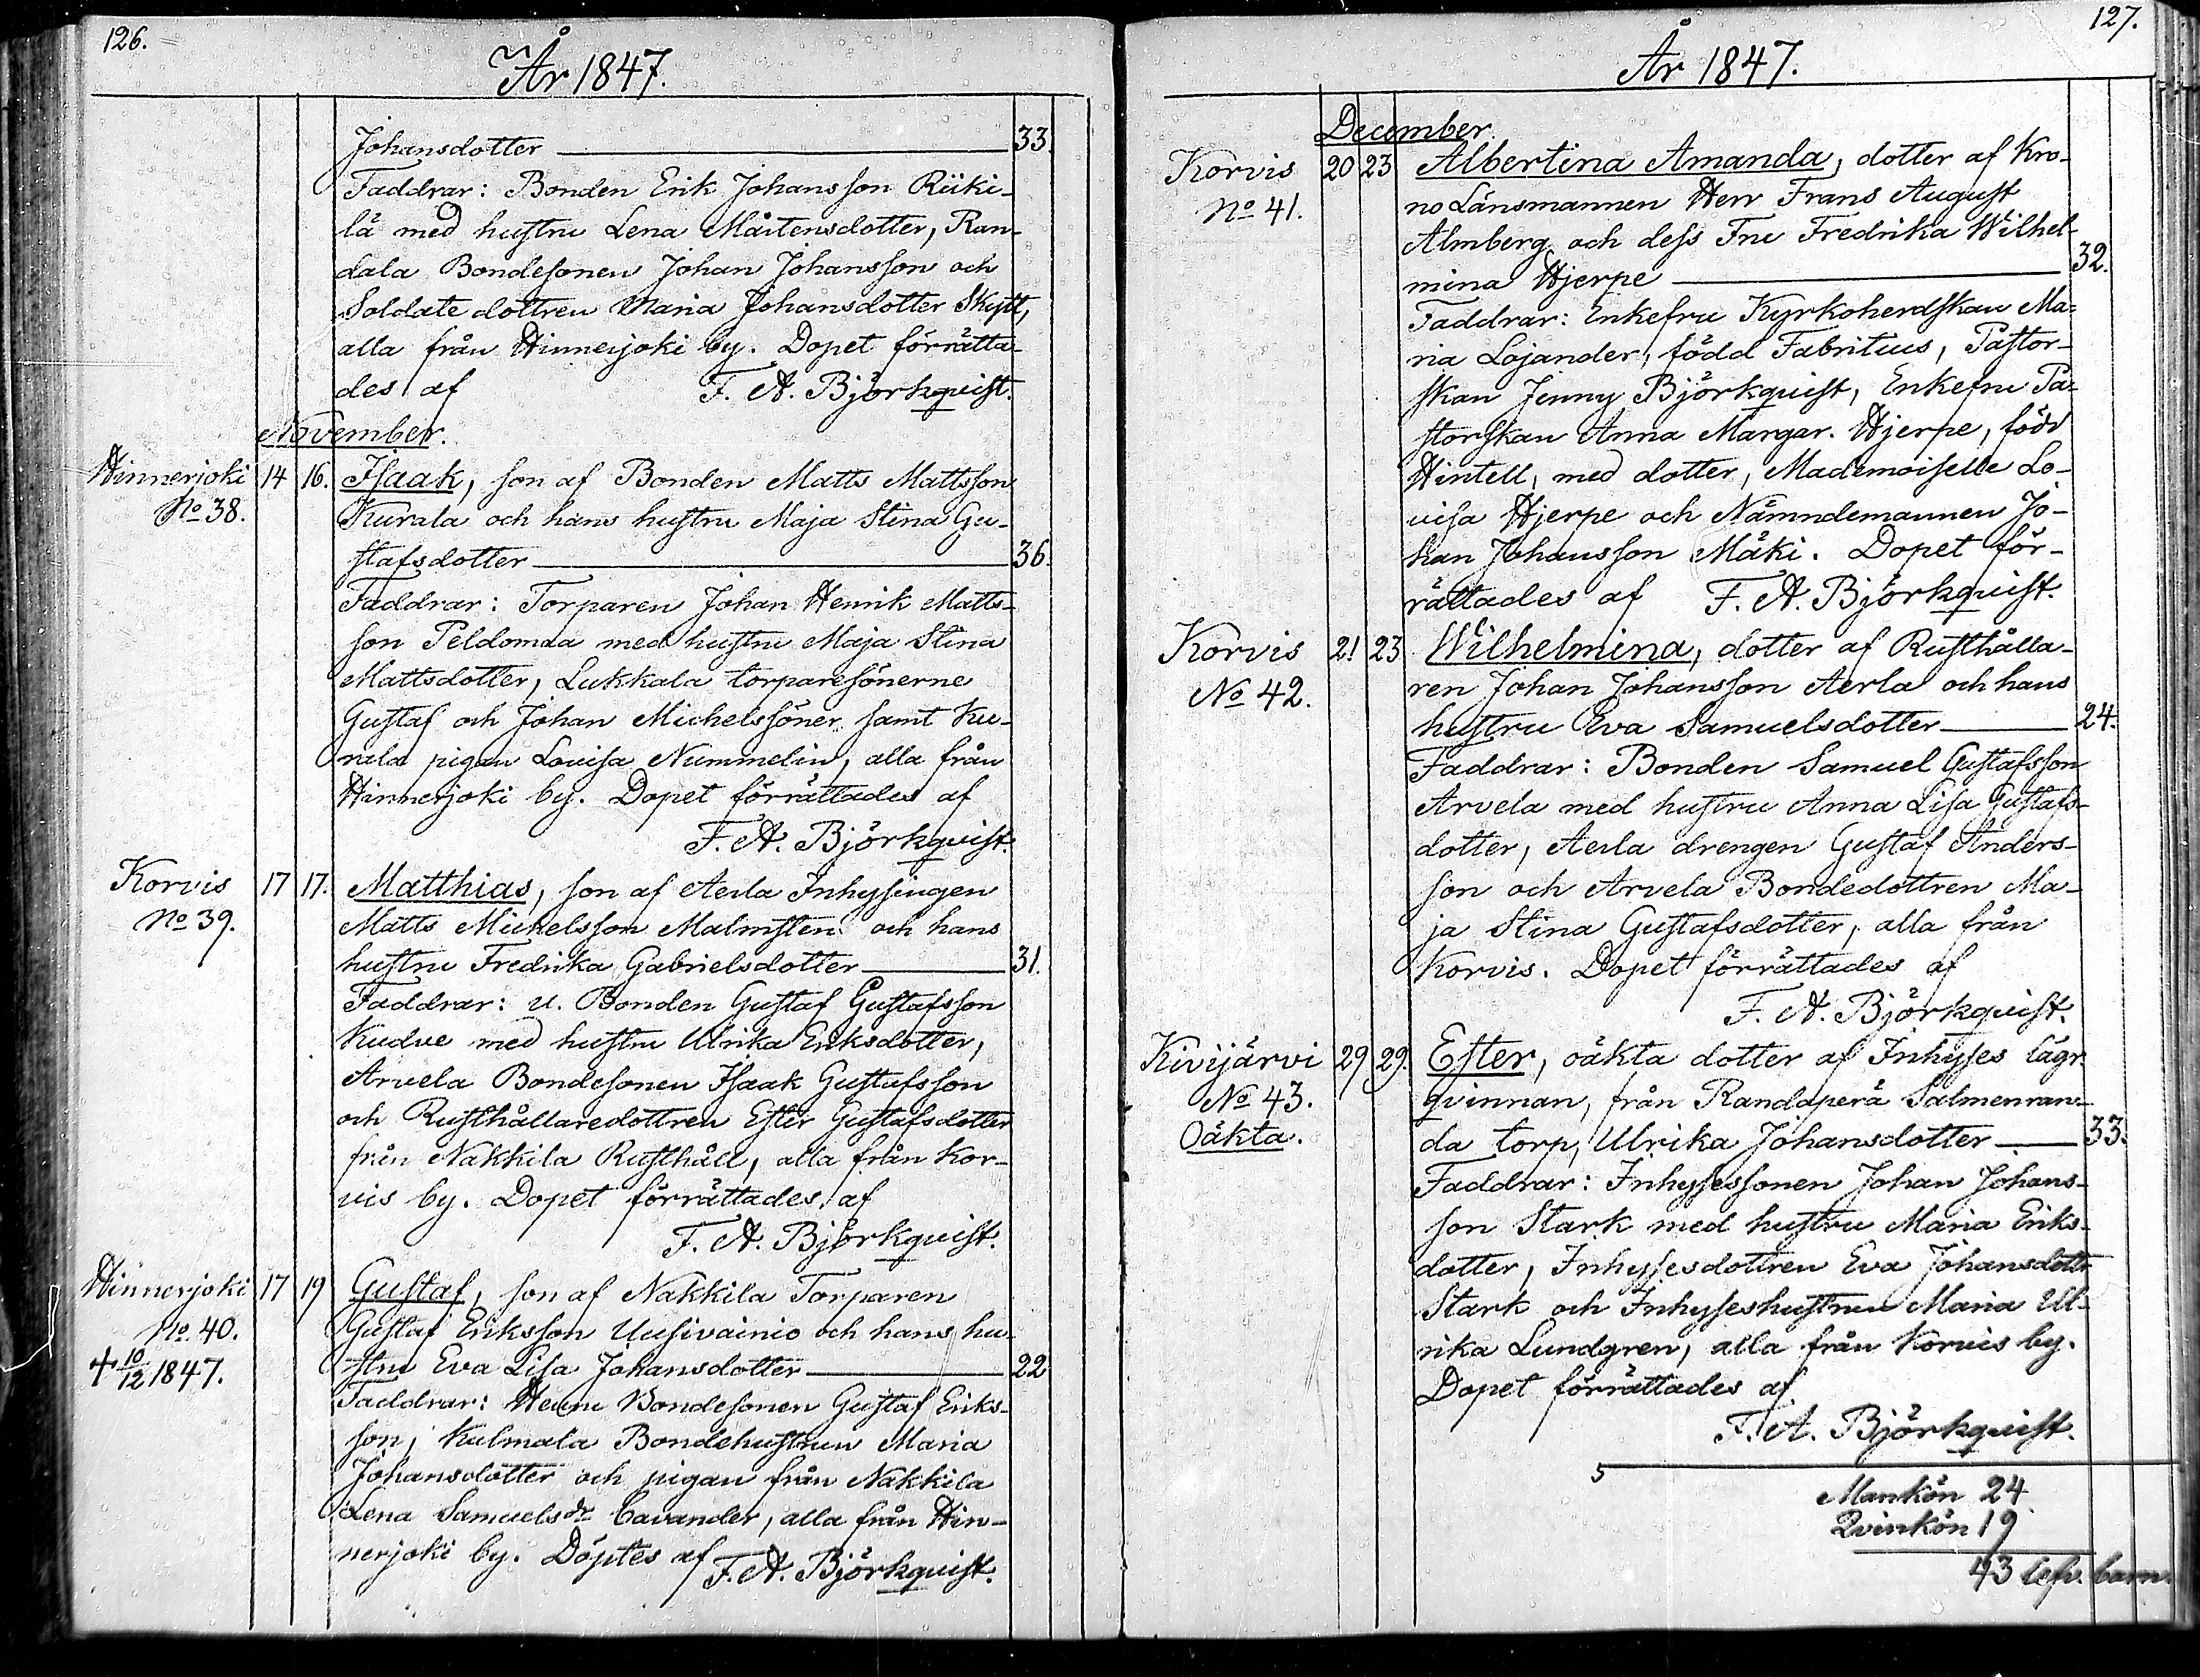 126.
År 1847.
Johansdotter 33.
Faddrar: Bonden Erik Johansson Riiki-
lä med hustru Lena Mårtensdotter, Ran-
dala Bondesonen Johan Johansson och
Soldate dottren Maria Johansdotter Skytt,
alla från Hinnerjoki by. Dopet förrätta-
des af F. A. Björkquist.
November.
Hinnerjoki 14 16. Isaak, son af Bonden Matts Mattsson
No 38. Kurala och hans hustru Maja Stina Gu-
stafsdotter 36.
Faddrar: Torparen Johan Henrik Matts-
son Peldomaa med hustru Maja Stina
Mattsdotter, Lukkala torparesönerne
Gustaf och Johan Michelssöner samt Ku-
rala pigan Lovisa Nummelin, alla från
Hinnerjoki by. Dopet förrättades af
F. A. Björkquist.
Korvis 17 17. Matthias, son af Aerla Inhysingen
No 39. Matts Michelsson Malmsten och hans
hustru Fredrika Gabrielsdotter 31.
Faddrar: u. Bonden Gustaf Gustafsson
Kudve med hustru Ulrika Eriksdotter,
Arvela Bondesonen Isaak Gustafsson
och Rusthållaredottren Ester Gustafsdotter
från Nakkila Rusthåll, alla från Kor-
vis by. Dopet förrättades af
F. A. Björkquist.
Hinnerjoki 17 19 Gustaf, son af Nakkila Torparen
No 40. Gustaf Eriksson Uusivainio och hans hu-
+ 10/12 1847. stru Eva Lisa Johansdotter 22
Faddrar: Bondesonen Gustaf Eriks-
son, Kulmala Bondehustrun Maria
Johansdotter och pigan från Nakkila
Lena Samuelsdr Cavander, alla från Hin-
nerjoki by. Döptes af F. A. Björkquist.
127.
År 1847.
December.
Korvis 20 23 Albertina Amanda, dotter af Kro-
No 41. no Länsmannen Herr Frans August
Almberg och dess Fru Fredrika Wilhel-
mina Hjerpe 32.
Faddrar: Enkefru Kyrkoherdskan Ma-
ria Lojander, född Fabritius, Pastor-
skan Jenny Björkquist, Enkefru Pa-
storskan Anna Margar. Hjerpe, född
Wintell, med dotter, Mademoiselle Lo-
visa Hjerpe och Nämndemannen Jo-
han Johansson Mäki. Dopet för-
rättades af F. A. Björkquist.
Korvis 21 23 Wilhelmina, dotter af Rusthålla-
No 42. ren Johan Johansson Aerla och hans
hustru Eva Samuelsdotter 24.
Faddrar: Bonden Samuel Gustafsson
Arvela med hustru Anna Lisa Gustafs-
dotter, Aerla drengen Gustaf Anders-
son och Arvela Bondedottren Ma-
ja Stina Gustafsdotter, alla från
Korvis. Dopet förrättades af
F. A. Björkquist.
Kivijärvi 29 29. Ester, oäkta dotter af Inhyses lägr.
No 43. qvinnan, från Randaperä Salmenran-
Oäkta. da torp, Ulrika Johansdotter 33.
Faddrar: Inhysessonen Johan Johans-
son Stark med hustru Maria Eriks-
dotter, Inhysesdottren Eva Johansdotter
Stark och Inhyseshustrun Maria Ul-
rika Lundgren, alla från Korvis by.
Dopet förrättades af
F. A. Björkquist.
5
Mankön 24
Qvinkön 19
43 lefv. barn.